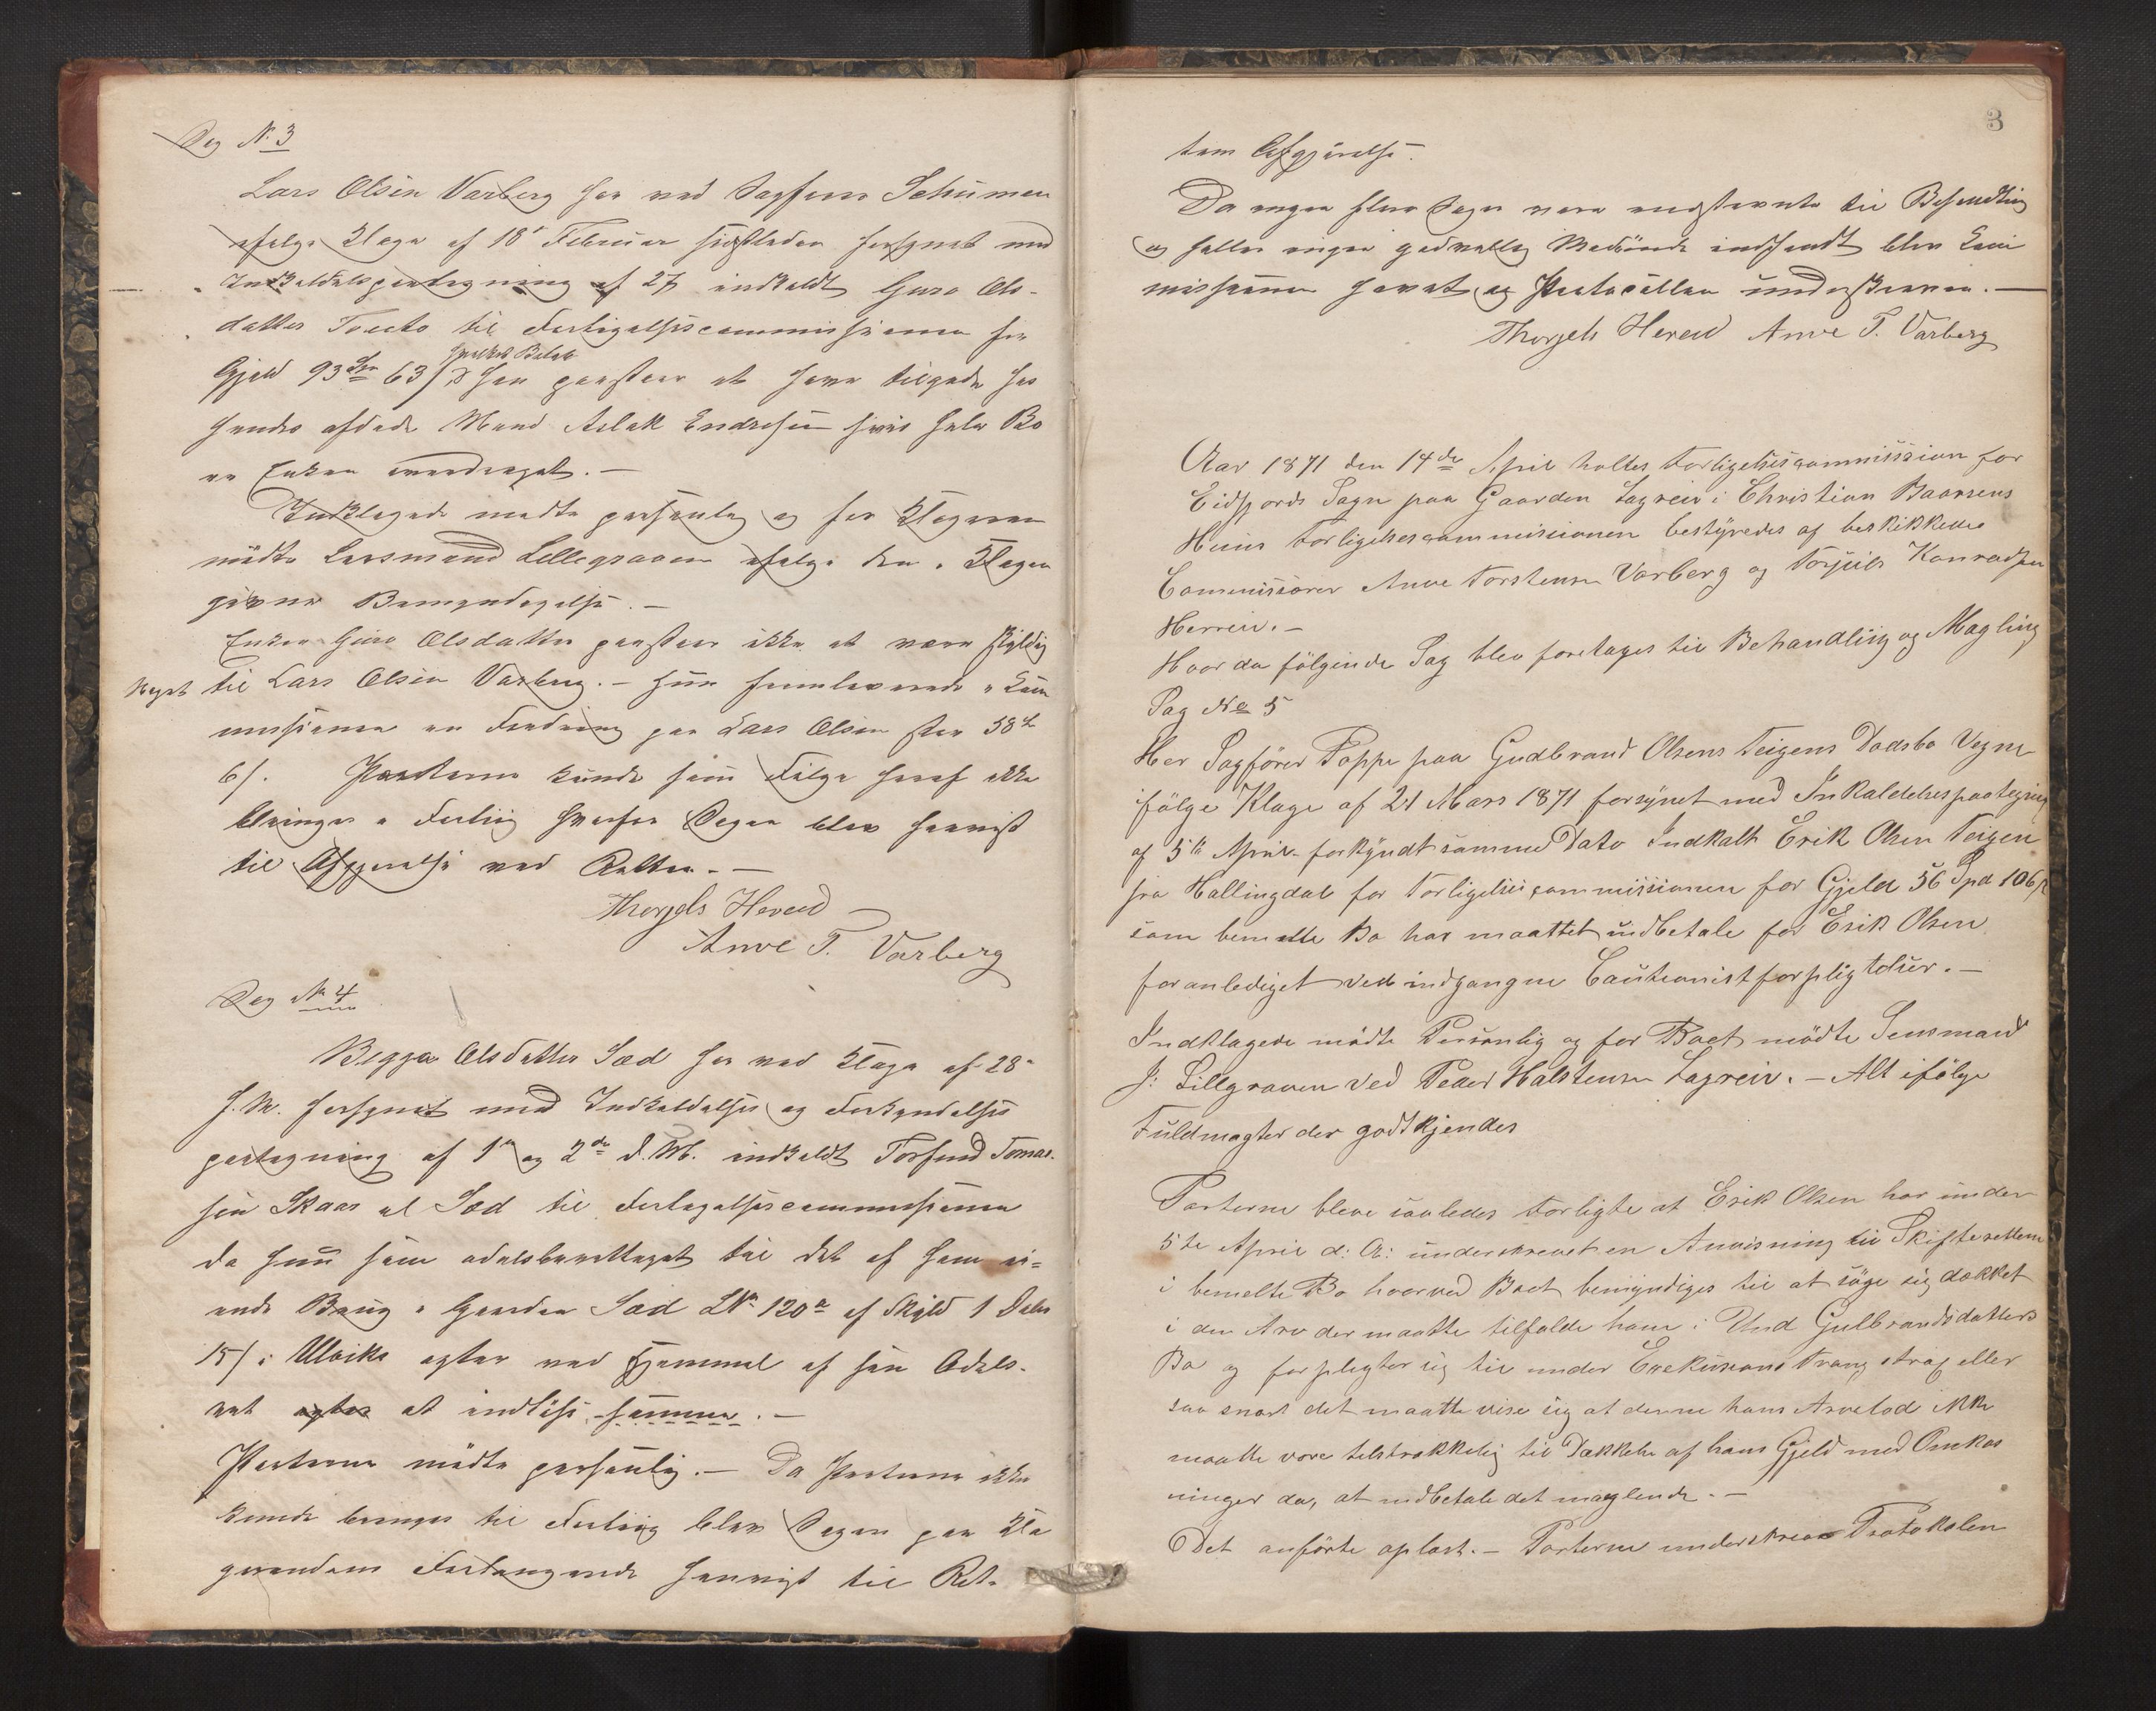 Sag N. 3
Lars Olsen Varberg har ved Sagfører Schumen
ifølge Klage af 18' Februar sidstleden forsynet med
Indkaldelsespaategning af 27 indkaldt Guro Ols-
datter Tveito til Forligelsescommissionen for
Gjeld 93 Spd 63 s hvilket Beløb han paastaar at have tilgode hos
hendes afdøde Mand Aslak Endresen hvis hele Bo
er Enken overdraget. —
Indklagede mødte personlig og for Klageren
mødte Lensmand Lillegraven ifølge den i Klagen
givne Bemyndigelse. —
Enken Guro Olsdatter paastaar ikke at være skyldig
Noget til Lars Olsen Varberg. — Hun fremleverede i Com
missionen en Fordring paa Lars Olsen stor 58
6 s. Parterne kunde som Følge heraf ikke
bringes i Forliig hvorfor Sagen blev henvist
til Afgjørelse ved Retten. —
Thorgels Hereid —
Anve T. Varberg
Sag No 4
Begga Olsdatter Sæd har ved Klage af 28
f. M. forsynet med Indkaldelses og Forkyndelses
paategning af 1 og 2de d. M. indkaldt Torfind Tomas-
sen Skaar al Sæd til Forligelsescommissionen
da hun som odelsberettiget til det af ham ei-
ende Brug i Gaarden Sæd LN 120a af Skyld 1 Daler
15 s i Ulvike agter ved Hjemmel af sin Odels-
ret agter at indløse samme. —
Parterne mødte personlig. — Da Parterne ikke
kunde bringes til Forliig blev Sagen paa Kla
gerindens Forlangende henvist til Ret-
3
tens Afgjørelse.
Da ingen flere Sager vare indstævnte til Behandling
og heller ingen godvillig Mødende indfandt blev Com
missionen hævet og Protocollen underskreven. —
Thorgels Hereid Anve T. Varberg
Aar 1871 den 14de April holtes Forligelsescommission for
Eidfjords Sogn paa Gaarden Lagreid i Christian Baarsens
Huus Forligelsescommissionen bestyredes af beskikkede
Commissører Anve Torstensen Varberg og Torjuls Konradsen
Herreid. —
Hvor da følgende Sag blev foretages til Behandling og Magling
Sag No 5
Her Sagfører Poppe paa Gudbrand Olsens Teigens Dødsbo Vegne
ifølge Klage af 21 Mars 1871 forsynet med Inkaldelsespaategning
af 5te April forkyndt samme Dato Indkalt Erik Olsen Teigen
fra Hallingdal for Forligelsescommissionen for Gjeld 56 Spd 106 s
som bemelte Bo har maattet udbetale for Erik Olsen
foranlediget ved indgangne Cautionistforpligtelser. —
Indklagede mødte Personlig og for Boet mødte Lensmand
J: Lillgraven ved Peder Halstensen Lagreid. — Alt ifølge
Fuldmagter der godtkjendes
Parterne bleve saaledes Forligte at Erik Olsen har under
5te April d: A: underskrevet en Anvisning til Skifteretten
i bemelte Bo hvorved Boet bemyndiges til at søge sig dækket
i den Arv der maatte tilfalde ham i Und Gulbrandsdatters
Bo og forpligter sig til under Exekusions Tvang strax eller
saa snart det maatte vise sig at denne hans Arvelod ikke
maatte være tilstrækkelig til Dækkelse af hans Gjeld med Omkos
ninger da, at udbetale det manglende. —
Det anførte oplæst. — Parterne underskrev Protokolen